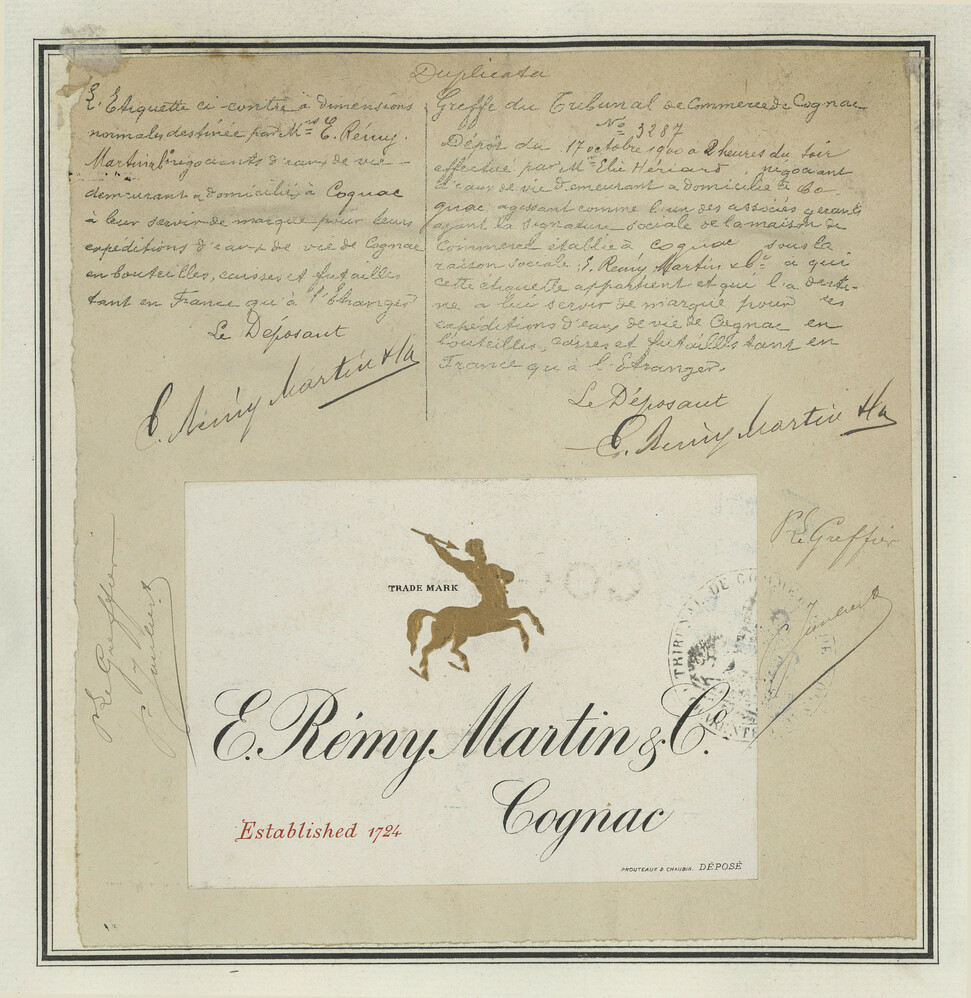 Duplicata
L'Etiquette ci-contre à dimensions
normales destinée par Mrs E. Rémy
Martin &Co négociants d'eaux de vie
demeurant & domiciliés à Cognac
à leur servir de marque pour leurs
expéditions d'eaux de vie de Cognac
en bouteilles, caisses et futailles
tant en France qu'à l'Etranger
Le Déposant
E. Rémy Martin & Co
Greffe du Tribunal de Commerce de Cognac
No 3287
Dépôt du 17 octobre 1900 à 2 heures du soir
effectué par Mr Elie Hériard, négociant
d'eaux de vie demeurant & domicilié à Co
gnac agissant comme l'un des associés gerants
ayant la signature sociale de la maison de
Commerce établie à Cognac sous la
raison sociale: E. Remy Martin & Co a qui
cette etiquette appartient et qui l'a desti-
né a lui servir de marque pour ses
expéditions d'eaux de vie de Cognac en
bouteilles, caisses et futailles tant en
France qu'à l'Etranger.
Le Déposant
E. Remy Martin & Co
Le Greffier
Le Greffier
TRIBUNAL DE COMMERCE
TRADE MARK
E. Rémy Martin & Co.
Cognac
Established 1724
PROUTEAUX & CHAUBIN. DÉPOSÉ